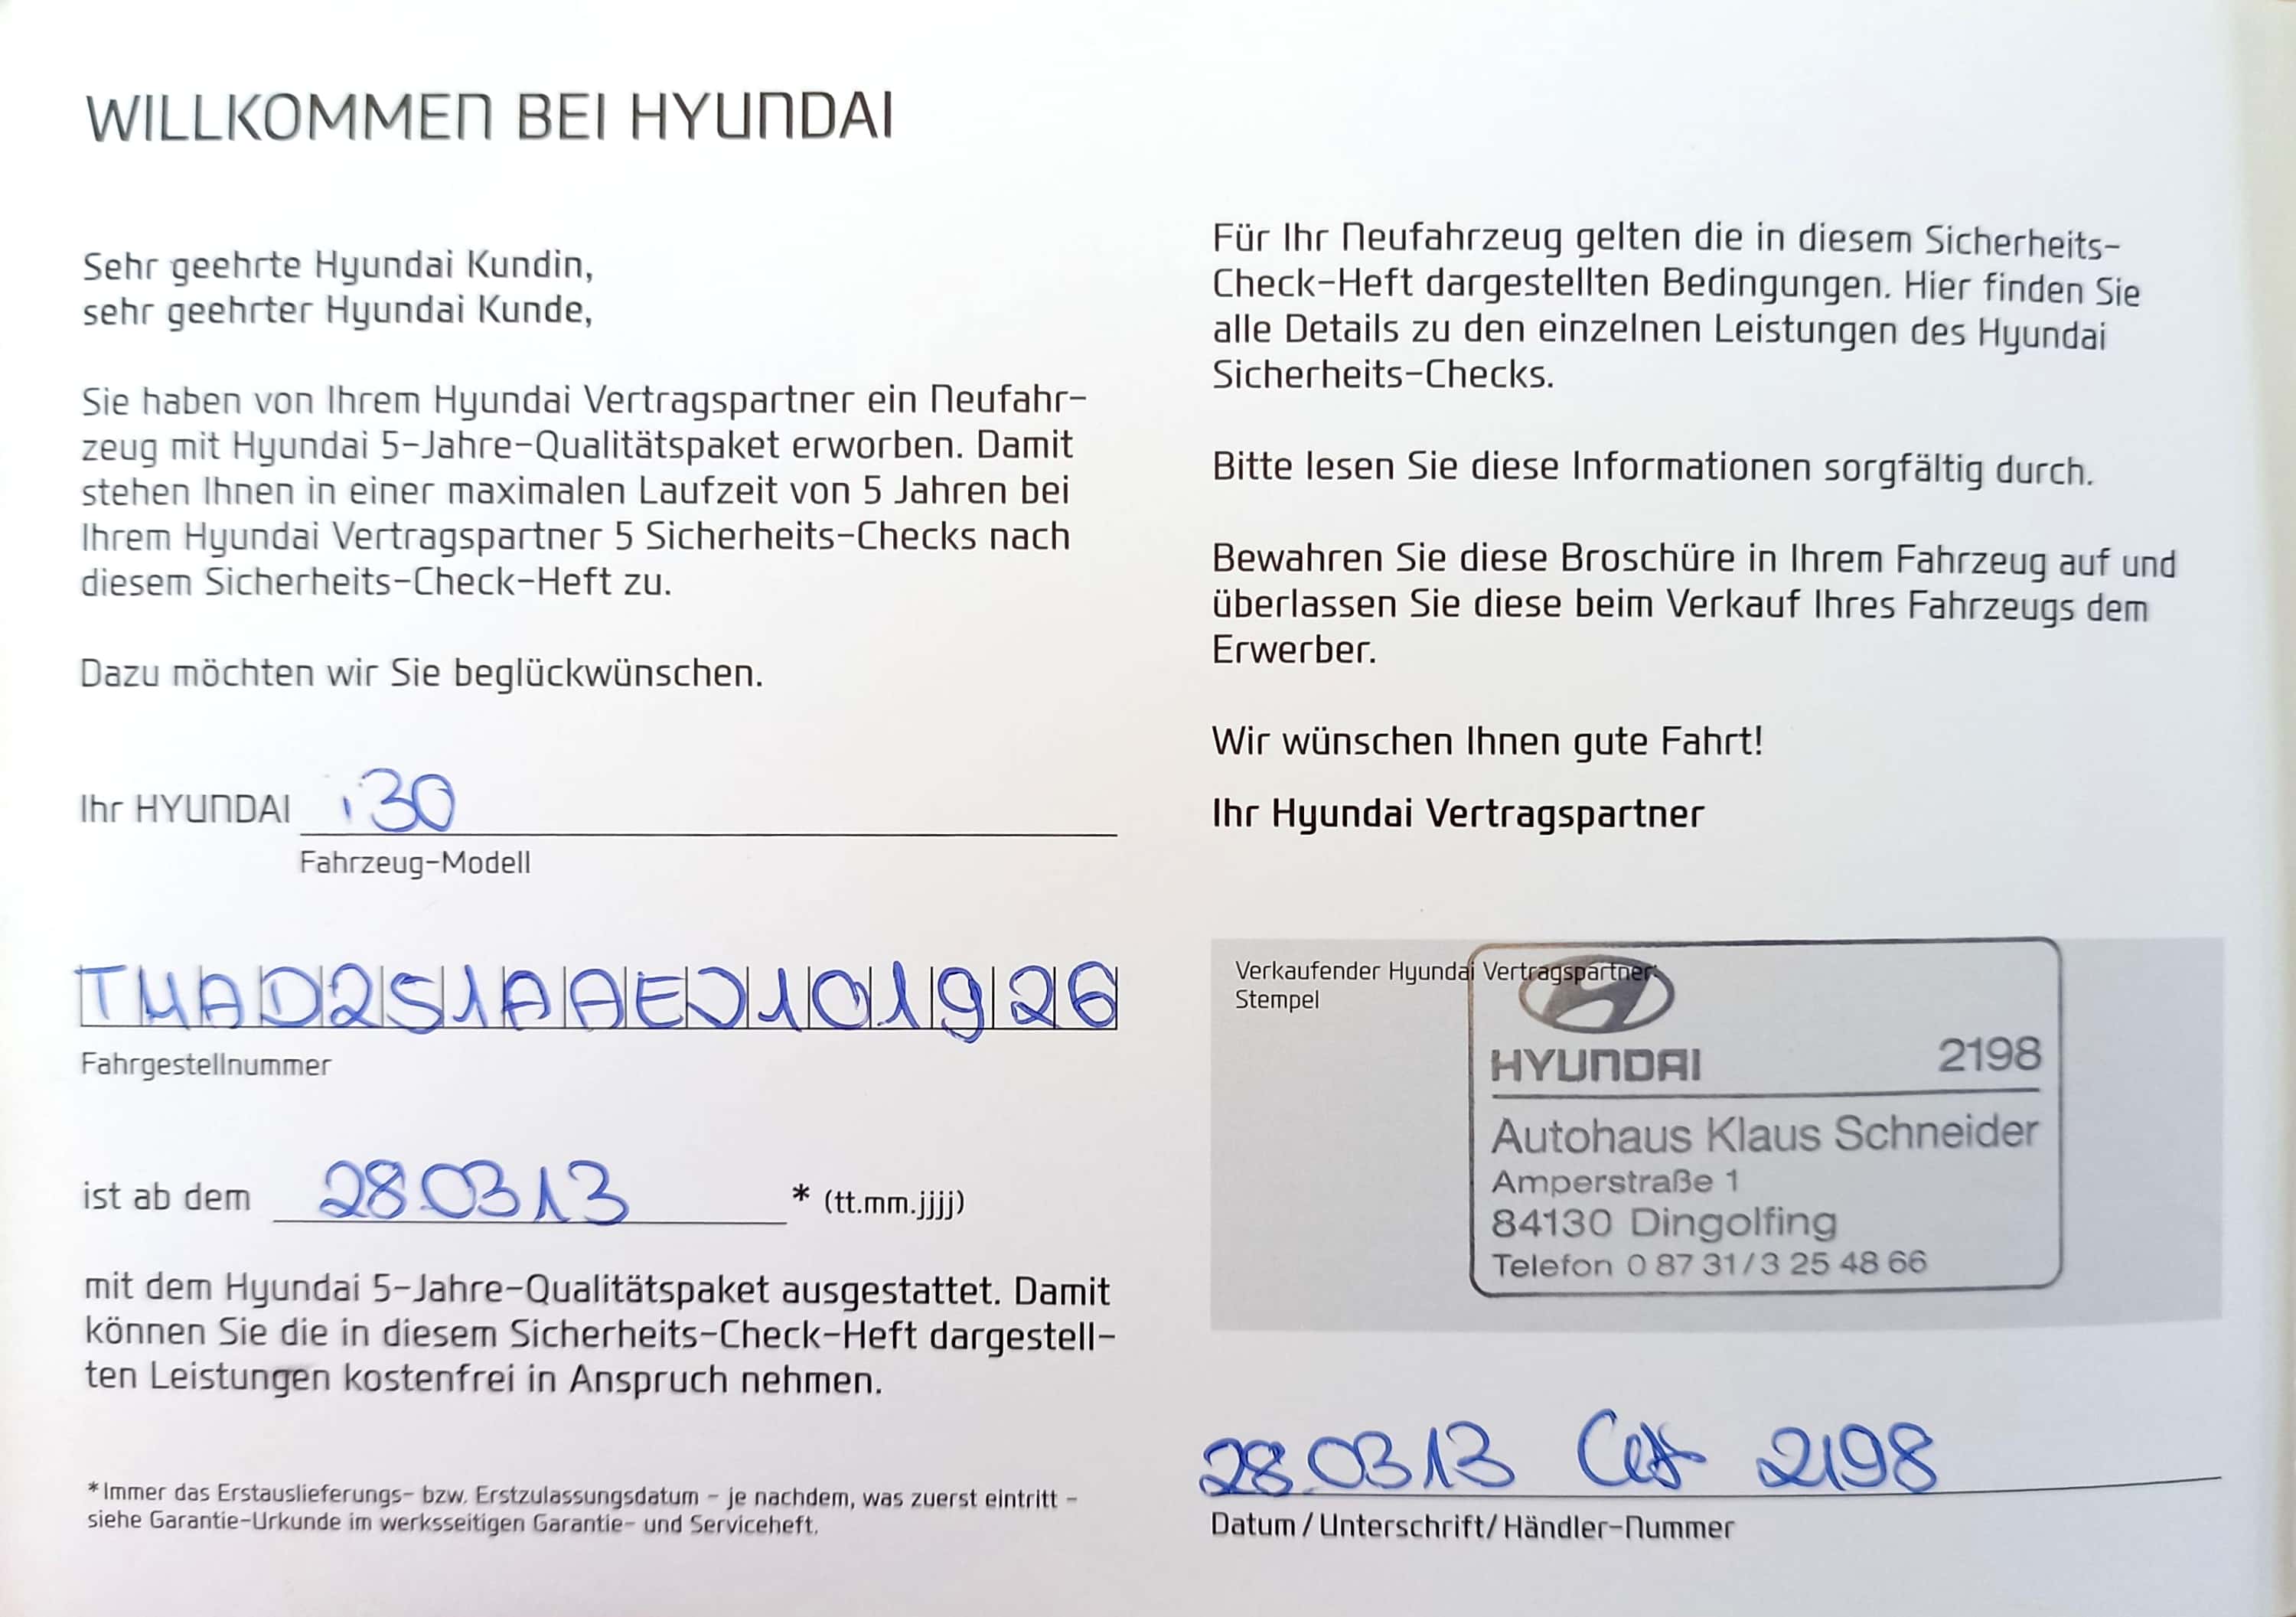 WILLKOMMEN BEI HYUNDAI
Sehr geehrte Hyundai Kundin,
sehr geehrter Hyundai Kunde,
Sie haben von Ihrem Hyundai Vertragspartner ein Neufahr-
zeug mit Hyundai 5-Jahre-Qualitätspaket erworben. Damit
stehen Ihnen in einer maximalen Laufzeit von 5 Jahren bei
Ihrem Hyundai Vertragspartner 5 Sicherheits-Checks nach
diesem Sicherheits-Check-Heft zu.
Dazu möchten wir Sie beglückwünschen.
Ihr HYUNDAI i30
Fahrzeug-Modell
TMAD251AAEJ101926
Fahrgestellnummer
ist ab dem 28.03.13 * (tt.mm.jjjj)
mit dem Hyundai 5-Jahre-Qualitätspaket ausgestattet. Damit
können Sie die in diesem Sicherheits-Check-Heft dargestell-
ten Leistungen kostenfrei in Anspruch nehmen.
*Immer das Erstauslieferungs- bzw. Erstzulassungsdatum - je nachdem, was zuerst eintritt -
siehe Garantie-Urkunde im werksseitigen Garantie- und Serviceheft.
Für Ihr Neufahrzeug gelten die in diesem Sicherheits-
Check-Heft dargestellten Bedingungen. Hier finden Sie
alle Details zu den einzelnen Leistungen des Hyundai
Sicherheits-Checks.
Bitte lesen Sie diese Informationen sorgfältig durch.
Bewahren Sie diese Broschüre in Ihrem Fahrzeug auf und
überlassen Sie diese beim Verkauf Ihres Fahrzeugs dem
Erwerber.
Wir wünschen Ihnen gute Fahrt!
Ihr Hyundai Vertragspartner
Verkaufender Hyundai Vertragspartner:
Stempel
HYUNDAI 2198
Autohaus Klaus Schneider
Amperstraße 1
84130 Dingolfing
Telefon 0 87 31/3 25 48 66
28.03.13 2198
Datum/Unterschrift/Händler-Nummer